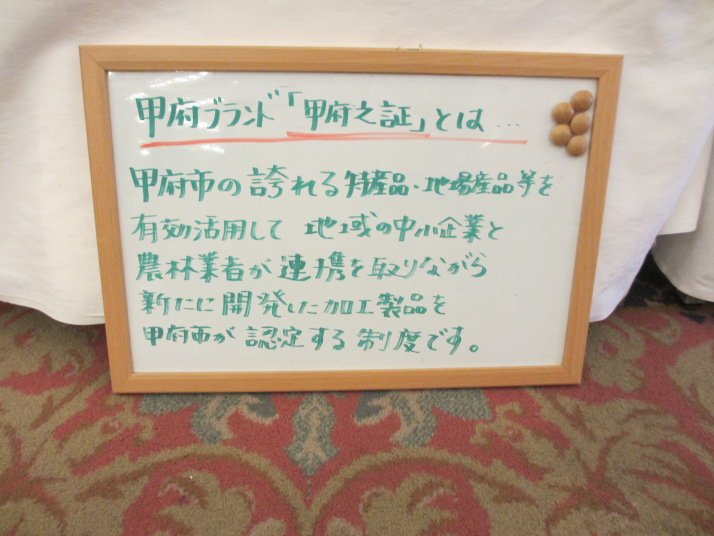 甲府ブランド「甲府之証」とは…
甲府市の誇れる特産品・地場産品等を
有効活用して 地域の中小企業と
農林業者が連携を取りながら
新たに開発した加工製品を
甲府市が認定する制度です。